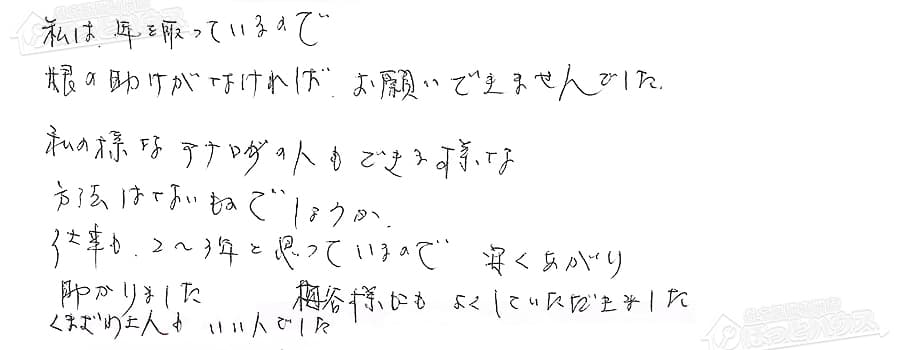 私は、年を取っているので
娘の助けがなければ、お願いできませんでした。
私の様な アナログの人もできる様な
方法はないものでしょうか。
仕事も、2〜3年と思っているので 安くあがり
助かりました 梅谷様にも よくしていただきました
も いい人でした